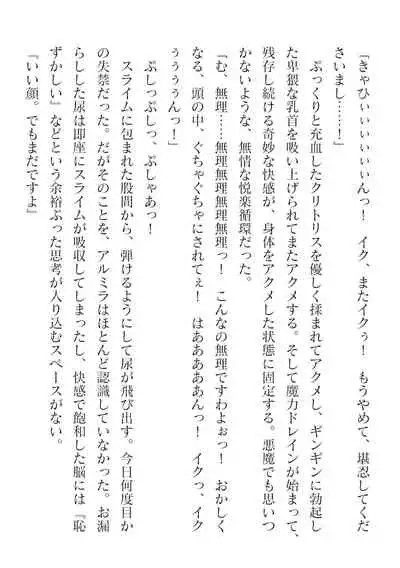 「きゃひぃぃぃぃぃぃんっ！　イク、またイクぅ！　もうやめて、堪忍してくだ
さいまし……！」
　ぷっくりと充血したクリトリスを優しく揉まれてアクメし、ギンギンに勃起し
た卑猥な乳首を吸い上げられてまたアクメする。そして魔力ドレインが始まって、
残存し続ける奇妙な快感が、身体をアクメした状態に固定する。悪魔でも思いつ
かないような、無情な悦楽循環だった。
「む、無理……無理無理無理無理っ！　こんなの無理ですわよぉっ！　おかしく
なる、頭の中、ぐちゃぐちゃにされてぇ！　はあああああんっ！　イクっ、イク
ぅぅぅぅんっ！」
　ぷしっぷしっ、ぷしゃあっ！
　スライムに包まれた股間から、弾けるようにして尿が飛び出す。今日何度目か
の失禁だった。だがそのことを、アルミラはほとんど認識していなかった。お漏
らしした尿は即座にスライムが吸収してしまったし、快感で飽和した脳には『恥
ずかしい』などという余裕ぶった思考が入り込むスペースがない。
『いい顔。でもまだですよ』